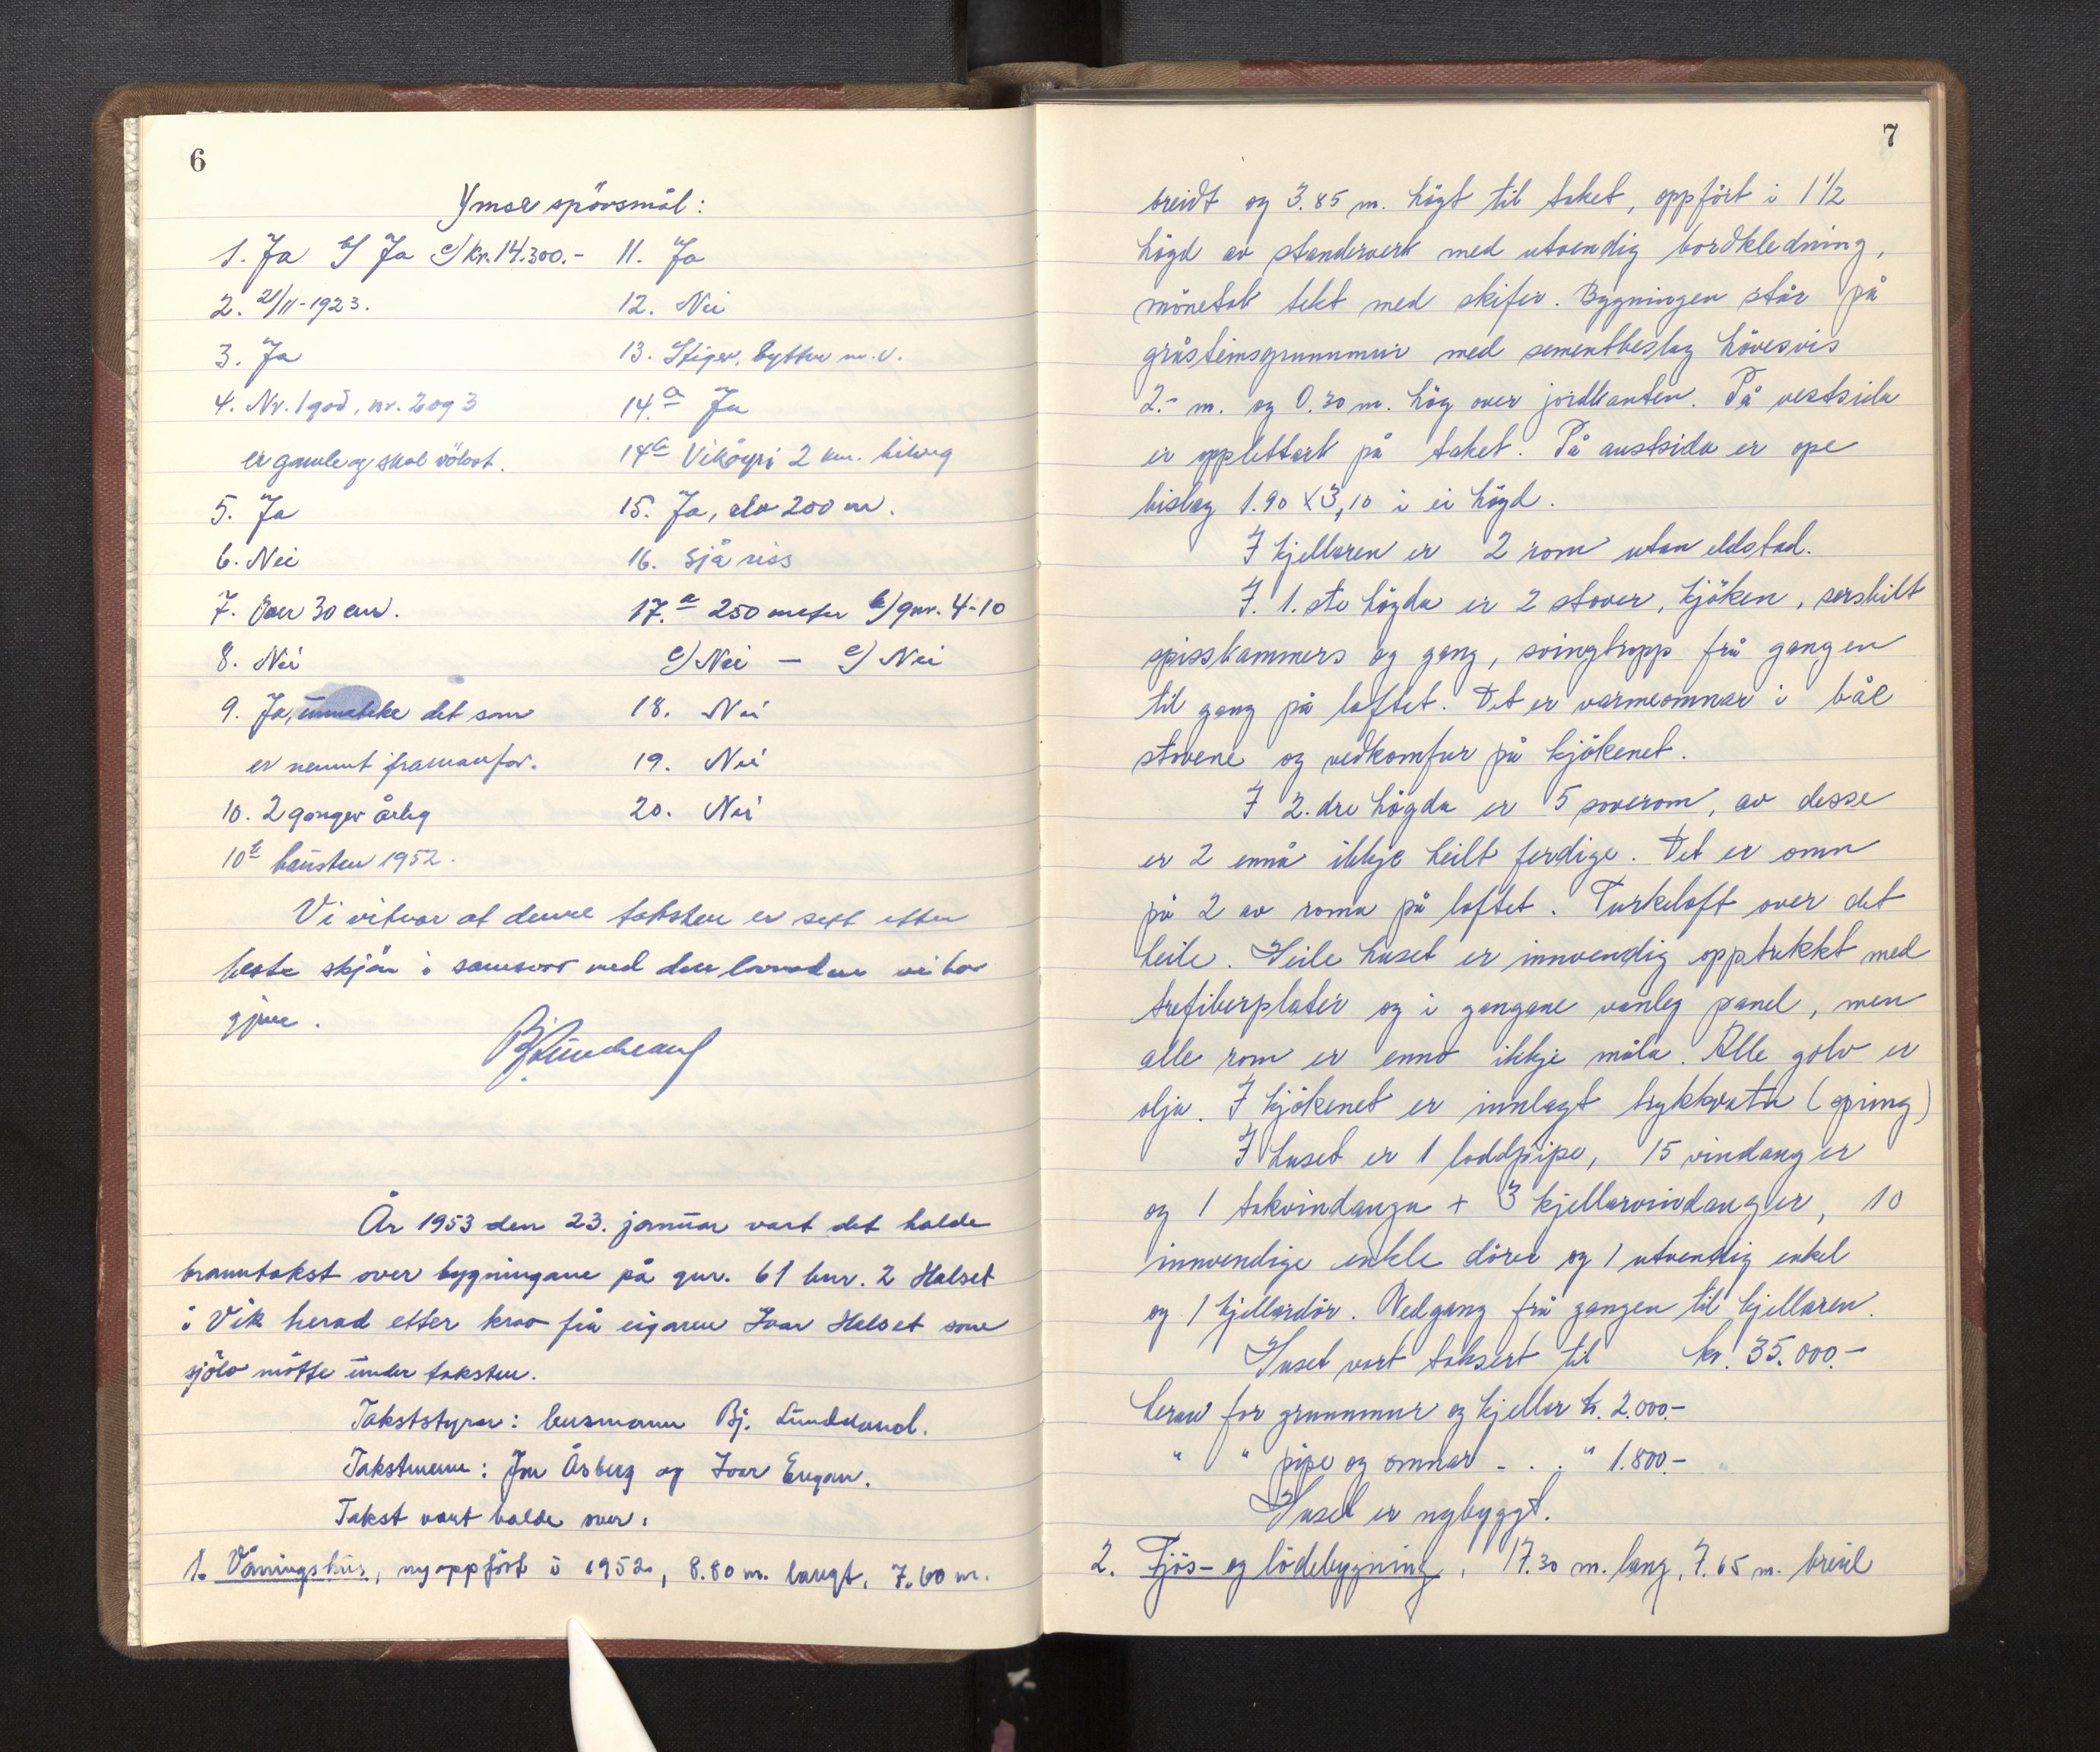 6
Ymse spörsmål:
1. Ja b/ Ja c/ kr. 14.300.-
2. 21/11-1923.
3. Ja
4. Nr. 1 god, nr. 2 og 3
er gamle og skal völast.
5. Ja
6. Nei
7. Over 30 cm.
8. Nei
9. Ja, det som
er nemnt framanfor.
10. 2 gonger årleg
10b hausten 1952.
11. Ja
12. Nei
13. Stiger, bytter m.v.
14.a Ja
14c Viköyri 2 km. bilveg
15. Ja, elv 200 m.
16. Sjå riss
17.a 250 meter b/ gnr. 4-10
c/ Nei — e/ Nei
18. Nei
19. Nei
20. Nei
Vi vitnar at denne taksten er sett etter
beste skjön i samsvar med den lovnaden vi har
gjeve.
Bj. Lunddeand
År 1953 den 23. januar vart det halde
branntakst over bygningane på gnr. 61 bnr. 2 Halset
i Vik herad etter krav frå eigaren Ivar Halset som
sjölv mötte under taksten.
Takststyrar: lensmann Bj.
Takstmenn: Jon Åsberg og Ivar Engan.
Takst vart halde over:
1. Våningshus, nyoppfört i 1952, 8.80 m. langt, 7.60 m.
7
breidt og 3.85 m. högt til taket, oppfört i 1 1/2
högd av standerverk med utvendig bordkledning,
mönetak tekt med skifer. Bygningen står på
gråsteinsgrunnmur med sementbeslag hövesvis
2.- m. og 0.30 m. hög over jordkanten. På vestsida
er opplettark på taket. På austsida er ope
bislag 1.90 x 3,10 i ei högd.
I kjellaren er 2 rom utan eldstad.
I. 1. ste högda er 2 stover, kjöken, serskilt
spisskammers og gang, svingtrapp frå gangen
til gang på loftet. Det er varmeomnar i båe
stovene og vedkomfur på kjökenet.
I 2. dre högda er 5 soverom, av desse
er 2 ennå ikkje heilt ferdige. Det er omn
på 2 av roma på loftet. Turkeloft over det
heile. Heile huset er innvendig opptrekkt med
trefiberplater og i gangane vanleg panel, men
alle rom er enno ikkje måla. Alle golv er
olja. I kjökenet er innlagt trykkvatn (spring)
I huset er 1 loddpipe, 15 vindauger
og 1 takvindauga + 3 kjellarvindauger, 10
innvendige enkle dörer og 1 utvendig enkel
og 1 kjellardör. Nedgang frå gangen til kjellaren.
Huset vart taksert til kr. 35.000.-
herav for grunnmur og kjellar kr. 2.000.-
" " pipe og omnar - . . " 1.800.-
Huset er nybyggt.
2. Fjös- og lödebygning, 17.30 m. lang, 7.65 m. breid